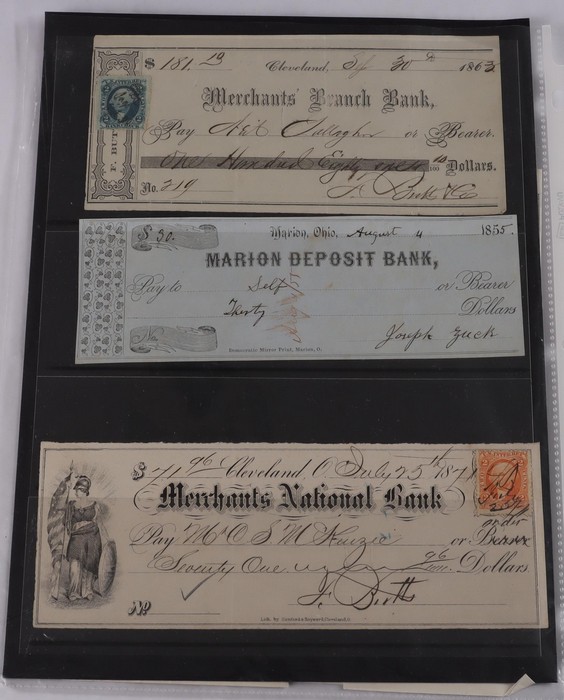 $ 181.19 Cleveland, Sep 30th 1863
Merchants' Branch Bank,
Pay A & C Gallagher or Bearer.
One Hundred Eighty one & 19/100 Dollars.
No. 219
F. Butts & Co
F. BUT
$ 30. Marion, Ohio, August 4 1855.
MARION DEPOSIT BANK,
Pay to Self or Bearer
Thirty Dollars
No. Joseph Zuck
Democratic Mirror Print, Marion, O.
$ 71 96 Cleveland, O July 25th 1871
Merchants National Bank
Pay Mr O S McKenzie or Bearer
order
Seventy One 96/100 Dollars.
No F. Butts